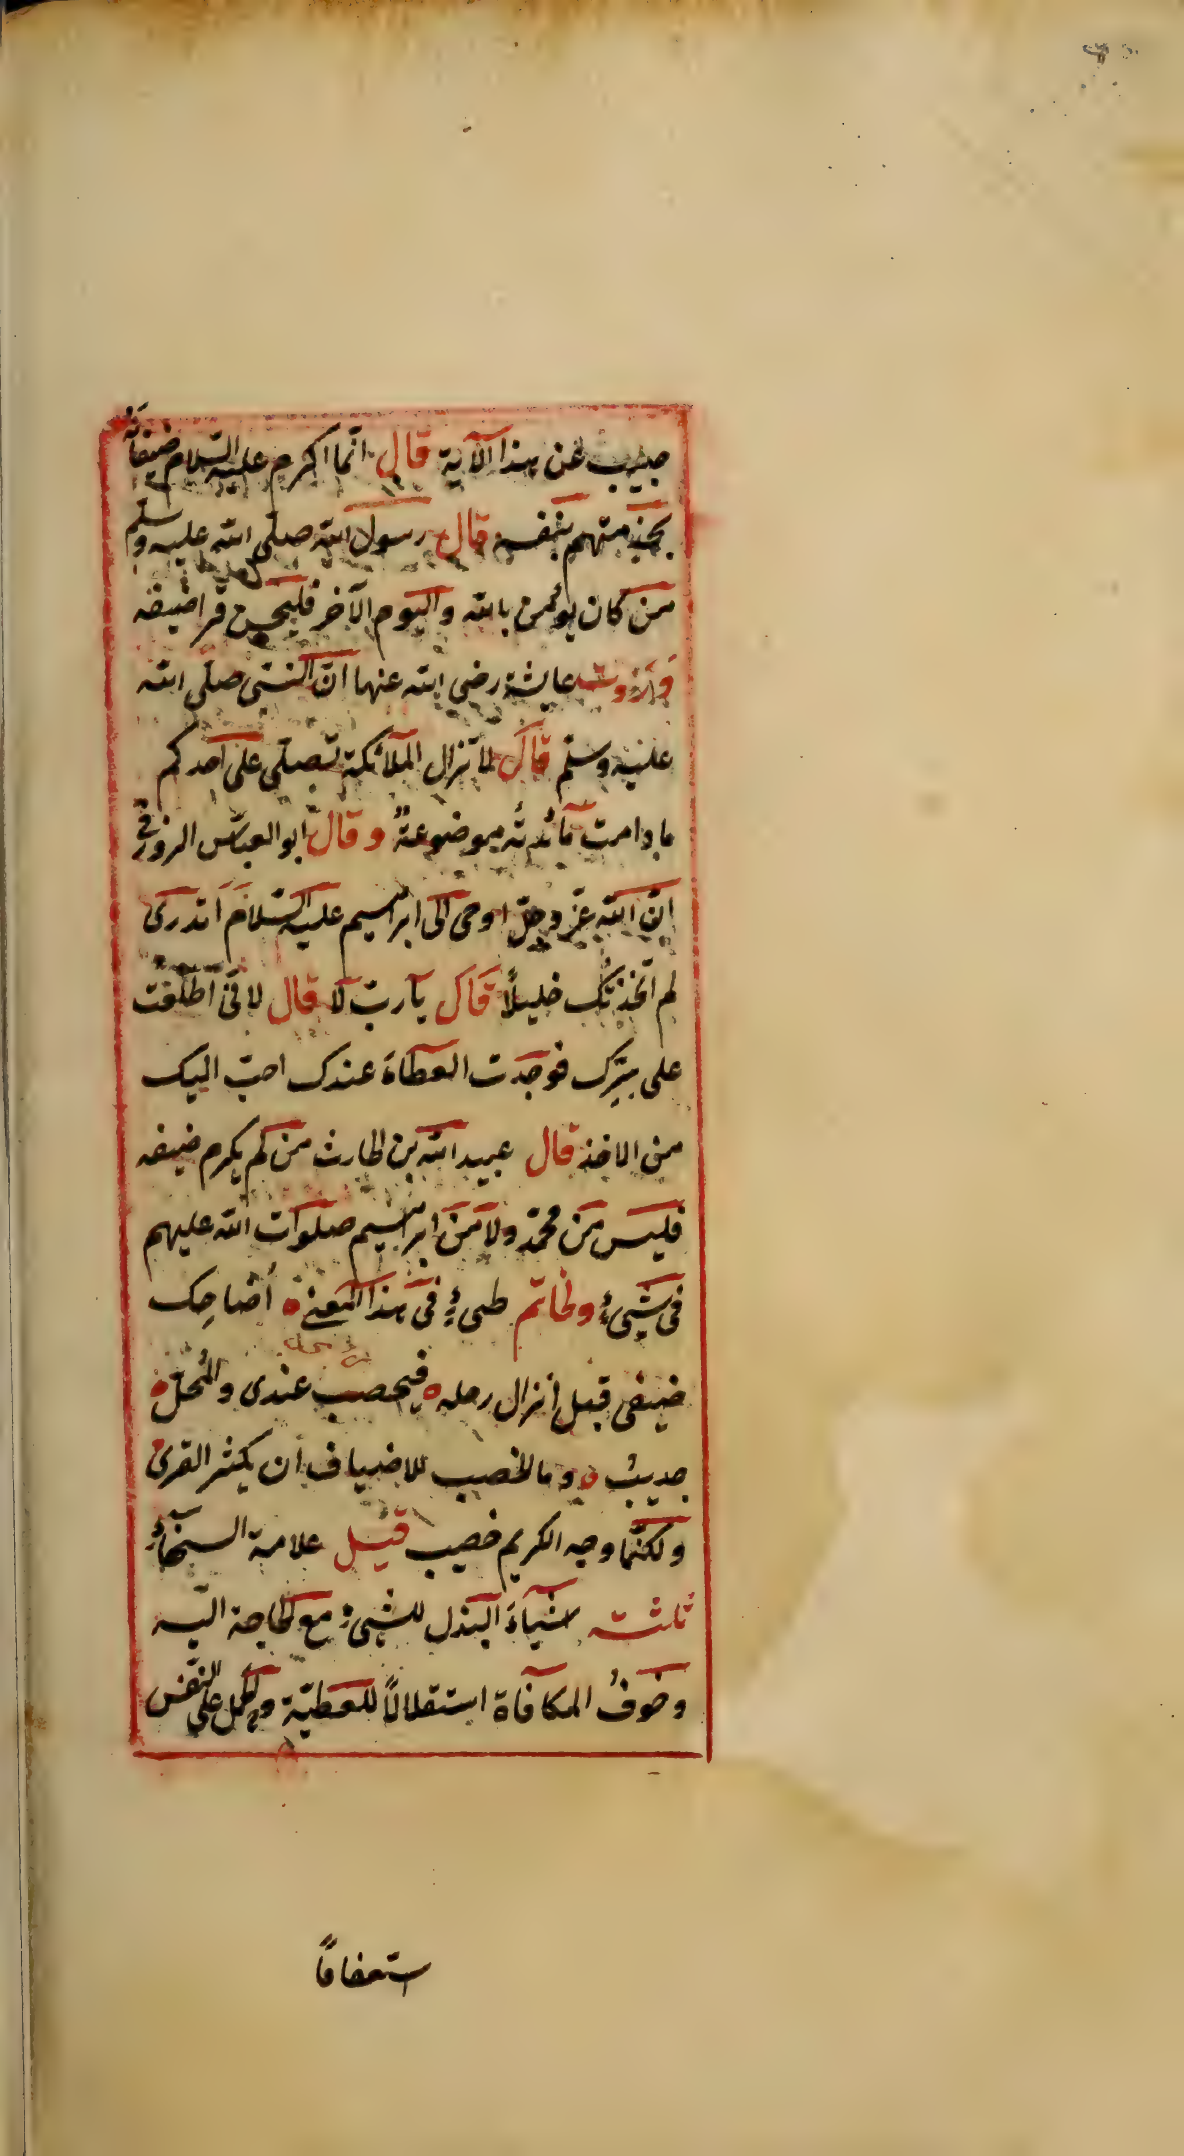 حبيب عن هذا الآية قال انما اكرم عليه السلام ضيفانه
بخدمتهم بنفسه قال رسول الله صلى الله عليه وسلم
من كان يؤمن بالله واليوم الآخر فليحسن قرا ضيفه
وروت عايشة رضى الله عنها ان النبى صلى الله
عليه وسلم قال لا تزال الملائكة تصلى على احدكم
ما دامت مائدته موضوعة وقال ابو العباس الزوزنى
ان الله عز وجل اوحى الى ابرهيم عليه السلام اتدرى
لم اتخذتك خليلاً قال يا رب لا قال لانى اطلعت
على سرك فوجدت العطاء عندك احب اليك
من الاخذ قال عبيد الله بن الحارث من لم يكرم ضيفه
فليس من محمد ولا من ابرهيم صلوات الله عليهم
فى شىء ولحاتم طىء فى هذا المعنى ه أضاحك
ضيفى قبل انزال رحله ه فيخصب عندى والمحل ه
جديب ه وما الخصب للاضياف ان يكثر القرى
ولكنما وجه الكريم خصيب قيل علامة السخاء
ثلثة اشياء البذل للشىء مع الحاجة اليه
وخوف المكافاة استقلالاً للعطية والحمل على النفس
ستعفافا